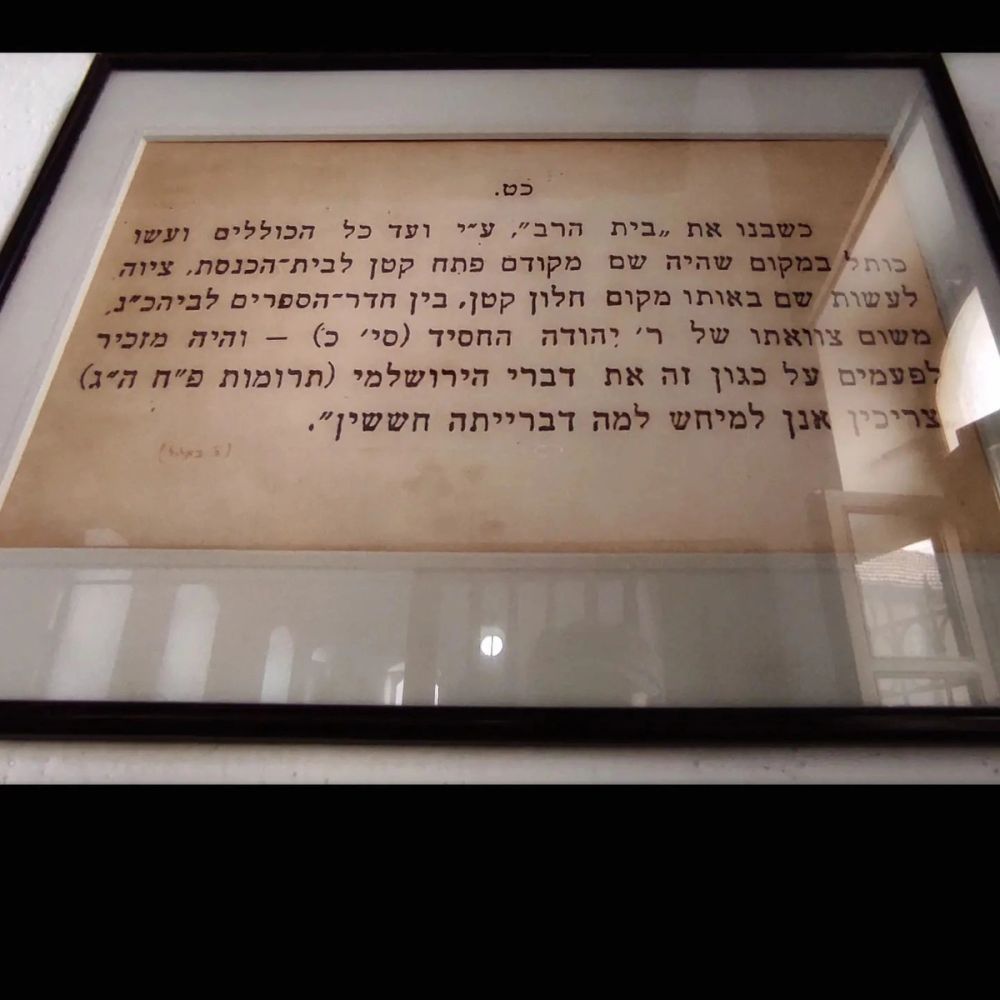 כט.
כשבנו את „בית הרב״, ע״י ועד כל הכוללים ועשו
כותל במקום שהיה שם מקודם פתח קטן לבית־הכנסת, ציוה
לעשות שם באותו מקום חלון קטן, בין חדר־הספרים לביהכ״נ,
משום צוואתו של ר׳ יהודה החסיד (סי׳ כ) — והיה מזכיר
לפעמים על כגון זה את דברי הירושלמי (תרומות פ״ח ה״ג)
צריכין אנן למיחש למה דברייתה חששין״.